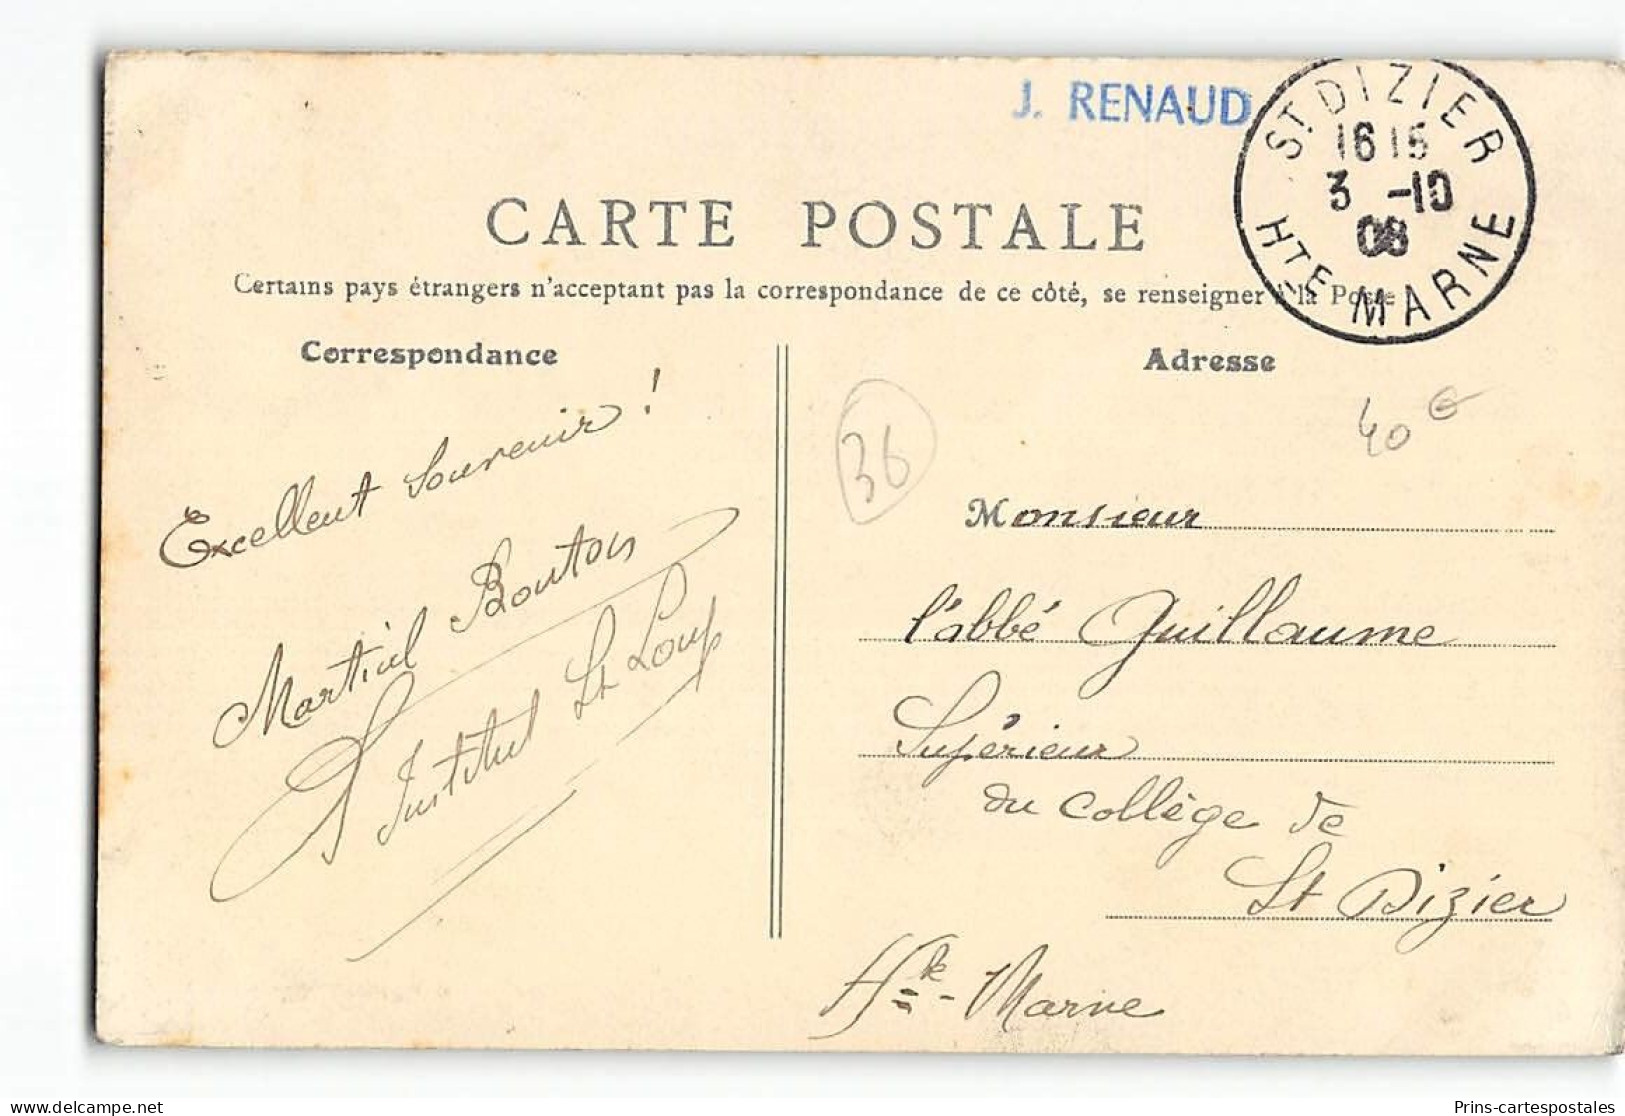 J. RENAUD
ST DIZIER
16 15
3 -10
08
HTE MARNE
CARTE POSTALE
Certains pays étrangers n'acceptant pas la correspondance de ce côté, se renseigner à la Poste
Correspondance
Excellent souvenir !
Martial Bouton
Institut St Loup
36
Adresse
40 €
Monsieur
l'abbé Guillaume
Supérieur
du Collège de
St Dizier
Hte-Marne
Prins-cartespostales